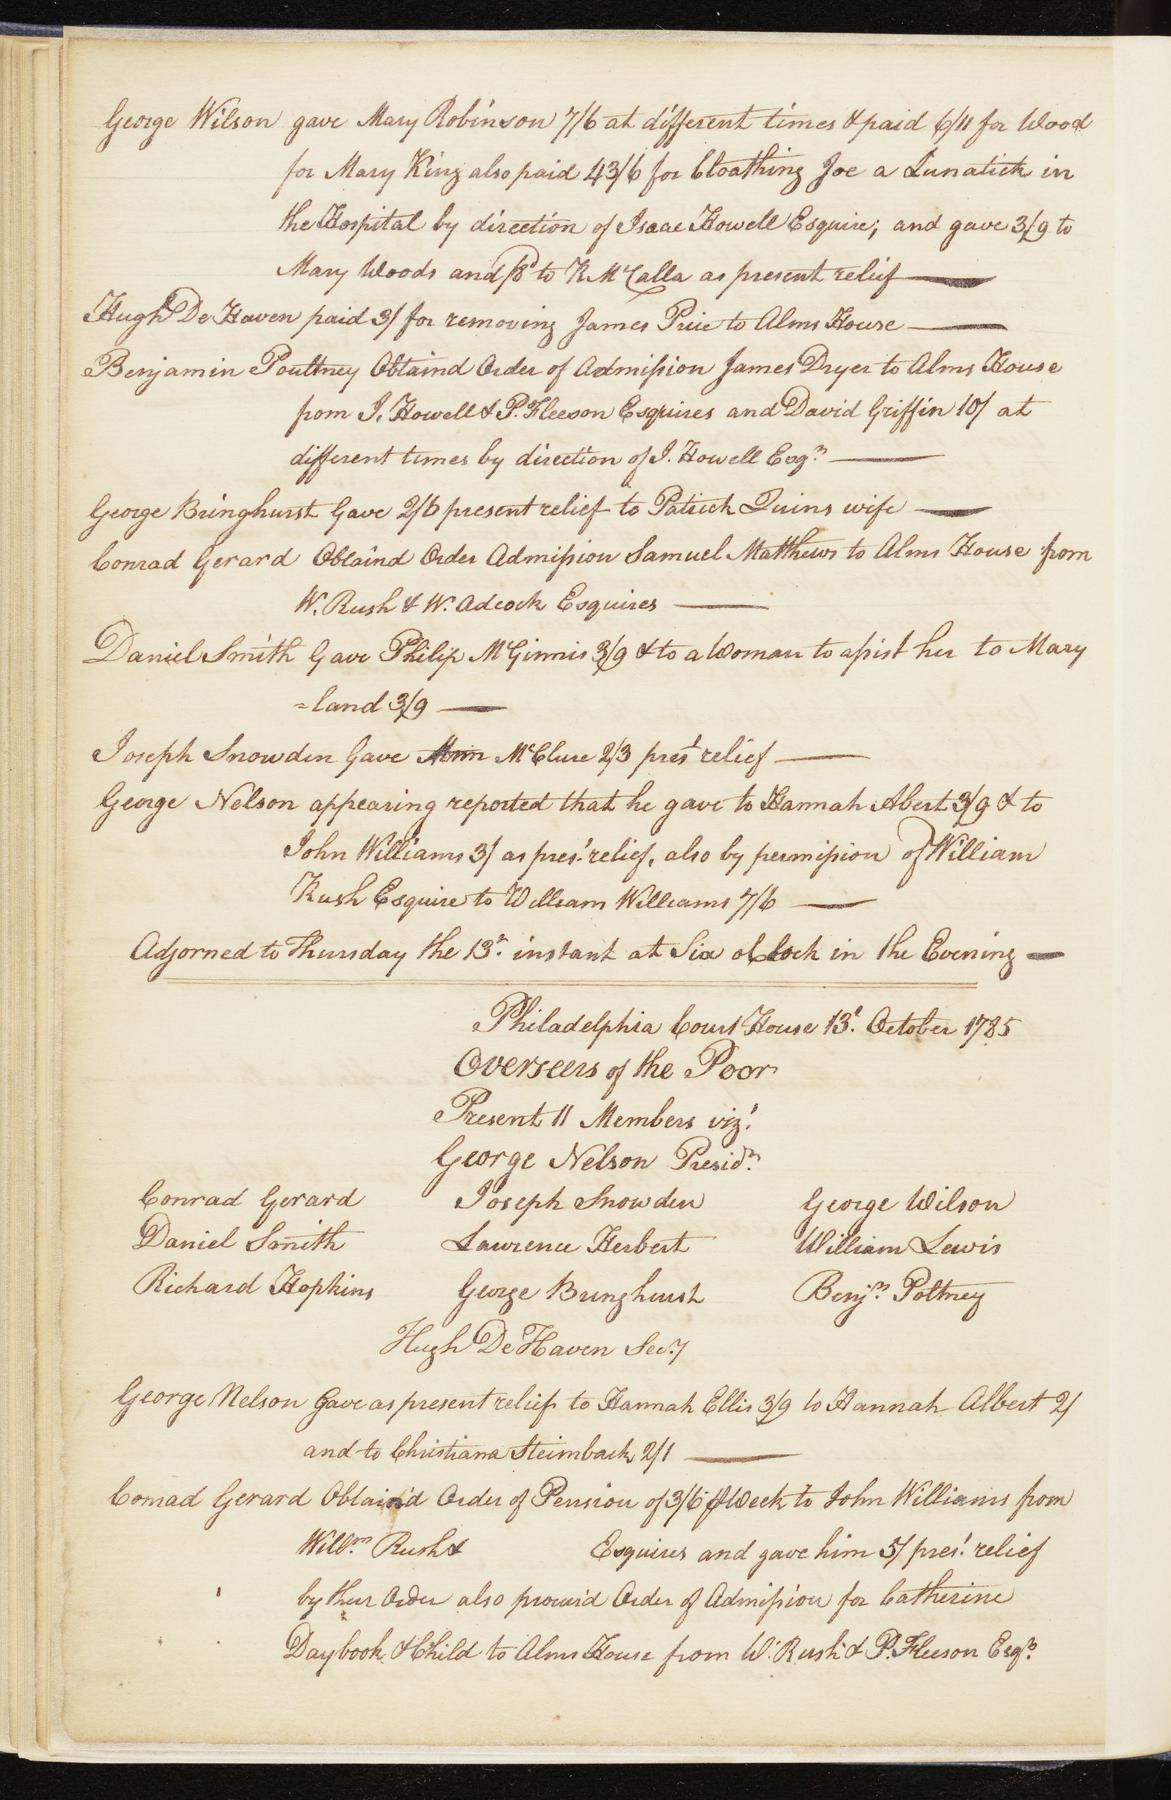 George Wilson gave Mary Robinson 7/6 at different times & paid 6/11 for Wood
for Mary King also paid 43/6 for Cloathing Joe a Lunatick in
the Hospital by direction of Isaac Howell Esquire; and gave 3/9 to
Mary Woods and /8d to K McCalla as present relief
Hugh De Haven paid 3/ for removing James Price to Alms House
Benjamin Poultney Obtaind Order of Admission James Dryer to Alms House
from I. Howell & P. Fleeson Esquires and David Griffin 10/ at
different times by direction of I. Howell Esqr
George Bringhurst Gave 2/6 present relief to Patrick Quins wife
Conrad Gerard Obtaind Order Admission Samuel Matthews to Alms House from
W. Rush & W. Adcock Esquires
Daniel Smith Gave Philip McGinnis 3/9 & to a Woman to assist her to Mary
=land 3/9
Joseph Snowden Gave McClure 2/3 prest relief
George Nelson appearing reported that he gave to Hannah Albert 3/9 & to
John Williams 3/ as prest relief, also by permission of William
Rush Esquire to William Williams 7/6
Adjorned to Thursday the 13t instant at Six oClock in the Evening
Philadelphia Court House 13t October 1785
Overseers of the Poor
Present 11 Members vizt
George Nelson Presidt
Conrad Gerard Joseph Snowden George Wilson
Daniel Smith Lawrence Herbert William Lewis
Richard Hopkins George Bringhurst Benjn Poltney
Hugh De Haven Secy
George Nelson Gave as present relief to Hannah Ellis 3/9 to Hannah Albert 2/
and to Christiana Steimback 2/1
Conrad Gerard Obtain'd Order of Pension of 3/6 Week to John Williams from
Willm Rush & Esquires and gave him 5/ prest relief
by their Order also procur'd Order of Admission for Catherine
Daybook & Child to Alms House from W. Rush & P. Fleeson Esqrs